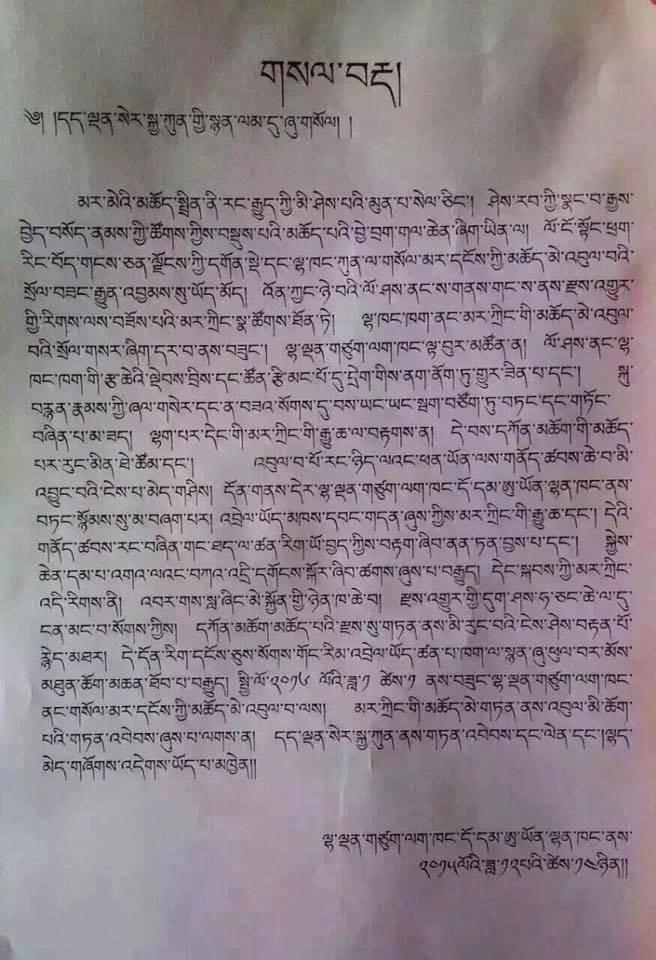 གསལ་བརྡ།
༄། །དད་ལྡན་སེར་སྐྱ་ཀུན་གྱི་སྙན་ལམ་དུ་ཞུ་གསོལ། །
མར་མེའི་མཆོད་སྤྲིན་ནི་རང་རྒྱུད་ཀྱི་མི་ཤེས་པའི་མུན་པ་སེལ་ཅིང་། ཤེས་རབ་ཀྱི་སྣང་བ་རྒྱས་
བྱེད་བསོད་ནམས་ཀྱི་ཚོགས་ཀྱིས་བསྡུས་པའི་མཆོད་པའི་བྱེ་བྲག་གལ་ཆེན་ཞིག་ཡིན་ལ། ལོ་ངོ་སྟོང་ཕྲག་
རིང་བོད་གངས་ཅན་ལྗོངས་ཀྱི་དགོན་སྡེ་དང་ལྷ་ཁང་ཀུན་ལ་གསོལ་མར་དངོས་ཀྱི་མཆོད་མེ་འབུལ་བའི་
སྲོལ་བཟང་རྒྱུན་འབྱམས་སུ་ཡོད་མོད། འོན་ཀྱང་ཉེ་བའི་ལོ་ཤས་ནང་ས་གནས་གང་ས་ནས་རྫས་འགྱུར་
གྱི་རིགས་ལས་བཟོས་པའི་མར་ཀྲིང་སྣ་ཚོགས་ཐོན་ཏེ། ལྷ་ཁང་ཁག་ནང་མར་ཀྲིང་གི་མཆོད་མེ་འབུལ་
བའི་སྲོལ་གསར་ཞིག་དར་བ་ནས་བཟུང་། ལྷ་ལྡན་གཙུག་ལག་ཁང་ལྟ་བུར་མཚོན་ན། ལོ་ཤས་ནང་ལྷ་
ཁང་ཁག་གི་རྩ་ཆེའི་ལྡེབས་བྲིས་དང་ཚོན་རྩི་མང་པོ་དུ་དྲེག་གིས་ནག་ནོག་ཏུ་གྱུར་ཟིན་པ་དང་། སྐུ་
བརྙན་རྣམས་ཀྱི་ཞལ་གསེར་དང་ན་བཟའ་སོགས་དུ་བས་ཡང་ཡང་སྦག་བཙོག་ཏུ་བཏང་དང་གཏོང་
བཞིན་པ་མ་ཟད། ལྷག་པར་དེང་གི་མར་ཀྲིང་གི་རྒྱུ་ཆ་ལ་བརྟགས་ན། དེ་བས་དཀོན་མཆོག་གི་མཆོད་
པར་རུང་མིན་ཐེ་ཚོམ་དང་། འབུལ་བ་པོ་རང་ཉིད་ལའང་ཕན་ཡོན་ལས་གནོད་ཚབས་ཆེ་བ་མི་
འབྱུང་བའི་ངེས་པ་མེད་གཤིས། དོན་གནས་དེར་ལྷ་ལྡན་གཙུག་ལག་ཁང་དོ་དམ་ཨུ་ཡོན་ལྷན་ཁང་ནས་
བཏང་སྙོམས་སུ་མ་བཞག་པར། འབྲེལ་ཡོད་མཁས་དབང་གདན་ཞུས་ཀྱིས་མར་ཀྲིང་གི་རྒྱུ་ཆ་དང་། དེའི་
གནོད་ཚབས་རང་བཞིན་གང་ཐད་ལ་ཚན་རིག་ཡོ་བྱད་ཀྱིས་བརྟག་ཞིབ་ནན་ཏན་བྱས་པ་དང་། སྐྱེས་
ཆེན་དམ་པ་འགའ་ལའང་བཀའ་འདྲི་དགོངས་སྐོར་ཞིབ་ཚགས་ཞུས་པ་བརྒྱུད། དེང་སྐབས་ཀྱི་མར་ཀྲིང་
འདི་རིགས་ནི། འབར་གས་སླ་ཞིང་མེ་སྐྱོན་གྱི་ཉེན་ཁ་ཆེ་བ། རྫས་འགྱུར་གྱི་དུག་ཤས་ཧ་ཅང་ཆེ་ལ་དུ་
ངན་མང་བ་སོགས་ཀྱིས། དཀོན་མཆོག་མཆོད་པའི་རྫས་སུ་གཏན་ནས་མི་རུང་བའི་ངེས་ཤེས་བརྟན་པོ་
རྙེད་མཐར། དེ་དོན་རིག་དངོས་ཅུས་སོགས་གོང་རིམ་འབྲེལ་ཡོད་ཚན་པ་ཁག་ལ་སྙན་ཞུ་ཕུལ་བར་མོས་
མཐུན་ཆོག་མཆན་ཐོབ་པ་བརྒྱུད། སྤྱི་ལོ་༢༠༡༦ ལོའི་ཟླ་༡ ཚེས་༡ ནས་བཟུང་ལྷ་ལྡན་གཙུག་ལག་ཁང་
ནང་གསོལ་མར་དངོས་ཀྱི་མཆོད་མེ་འབུལ་བ་ལས། མར་ཀྲིང་གི་མཆོད་མེ་གཏན་ནས་འབུལ་མི་ཆོག་
པའི་གཏན་འབེབས་ཞུས་པ་ལགས་ན། དད་ལྡན་སེར་སྐྱ་ཀུན་ནས་གཏན་འབེབས་དང་ལེན་དང་།ལྷད་
མེད་གཞོགས་འདེགས་ཡོད་པ་མཁྱེན།།
ལྷ་ལྡན་གཙུག་ལག་ཁང་དོ་དམ་ཨུ་ཡོན་ལྷན་ཁང་ནས་
༢༠༡༥ལོའི་ཟླ་༡༢པའི་ཚེས་༡༩ཉིན།།